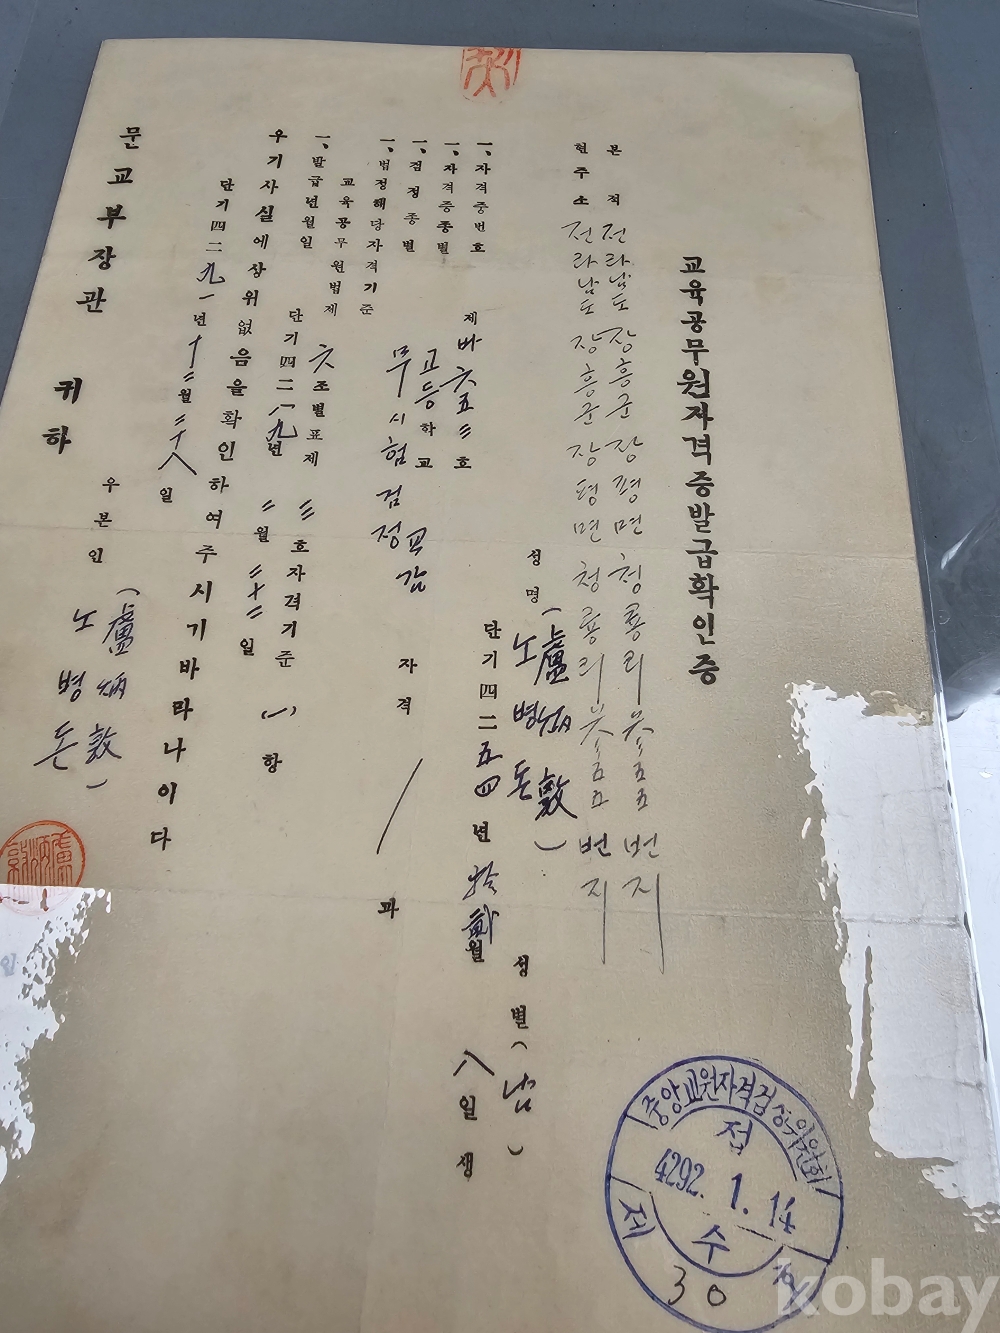 교육공무원자격증발급확인증
본적 전라남도 장흥군 장평면 청룡리 五五 번지
현주소 전라남도 장흥군 장평면 청룡리 五五 번지
성명 (盧炳敦) 노병돈 성별 (남)
단기四二五四년 拾貳월 八일생
一、자격증번호 제 바六五三호
一、자격증종별 고등학교 교감 자격
一、검정종별 무시험검정 / 과
一、법정해당자격기준
교육공무원법제 六조별표제 三호자격기준 (一) 항
一、발급년월일 단기四二八九년 三월 三十三일
우기사실에상위없음을확인하여주시기바라나이다
단기四二九一년 十二월 二十八일
우본인 (盧炳敦) 노병돈
문교부장관 귀하
盧炳敦
중앙교원자격검정위원회
접
4292. 1. 14
수
제 30 호
kobay